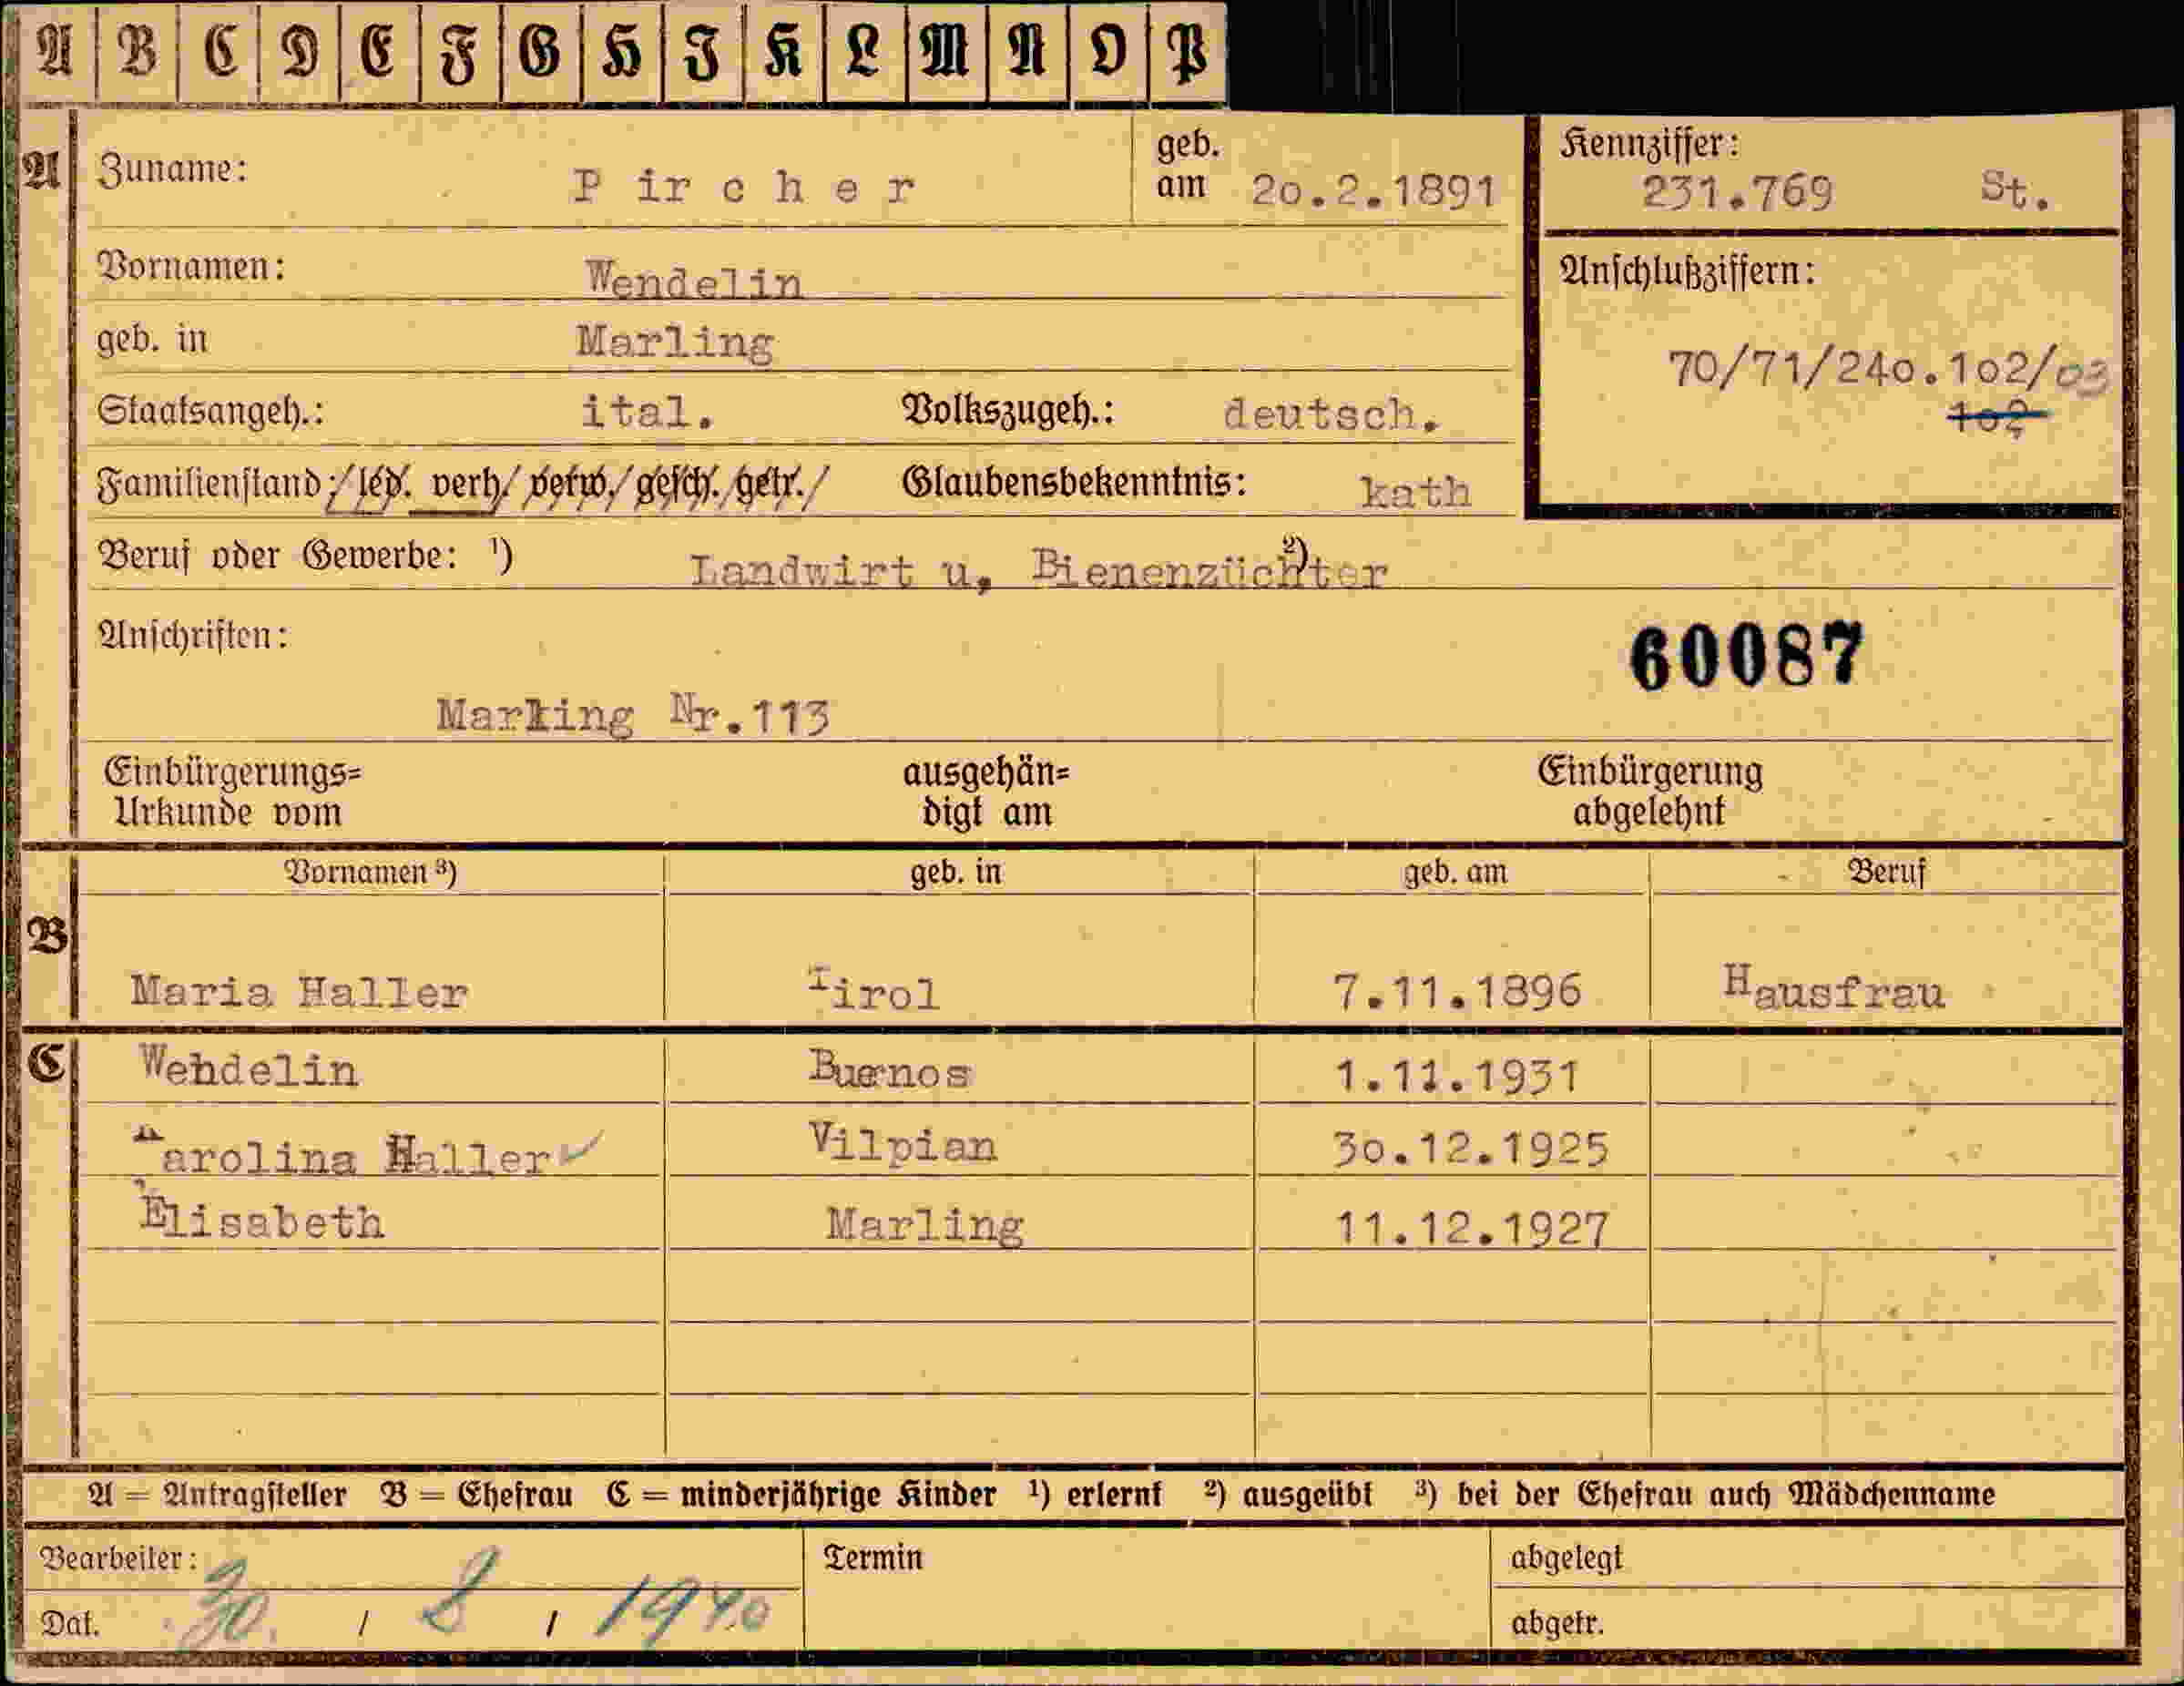 A B C D E F G H I K L M N O P
A Zuname: Pircher geb. am 20.2.1891
Kennziffer: 231.769 St.
Vornamen: Wendelin
Anschlußziffern:
geb. in Marling
70/71/240.102/03
102
Staatsangeh.: ital. Volkszugeh.: deutsch.
Familienstand: led. verh. verw. gesch. getr. Glaubensbekenntnis: kath
Beruf oder Gewerbe: ¹) Landwirt u, Bienenzüchter ²)
Anschriften:
60087
Marling Nr.113
Einbürgerungs= ausgehän= Einbürgerung
Urkunde vom digt am abgelehnt
Vornamen ³) geb. in geb. am Beruf
B
Maria Haller Tirol 7.11.1896 Hausfrau
C Wendelin Buenos 1.11.1931
Karolina Haller Vilpian 30.12.1925
Elisabeth Marling 11.12.1927
A = Antragsteller B = Ehefrau C = minderjährige Kinder ¹) erlernt ²) ausgeübt ³) bei der Ehefrau auch Mädchenname
Bearbeiter: Termin abgelegt
Dat. 30. / 8 / 1940 abgetr.